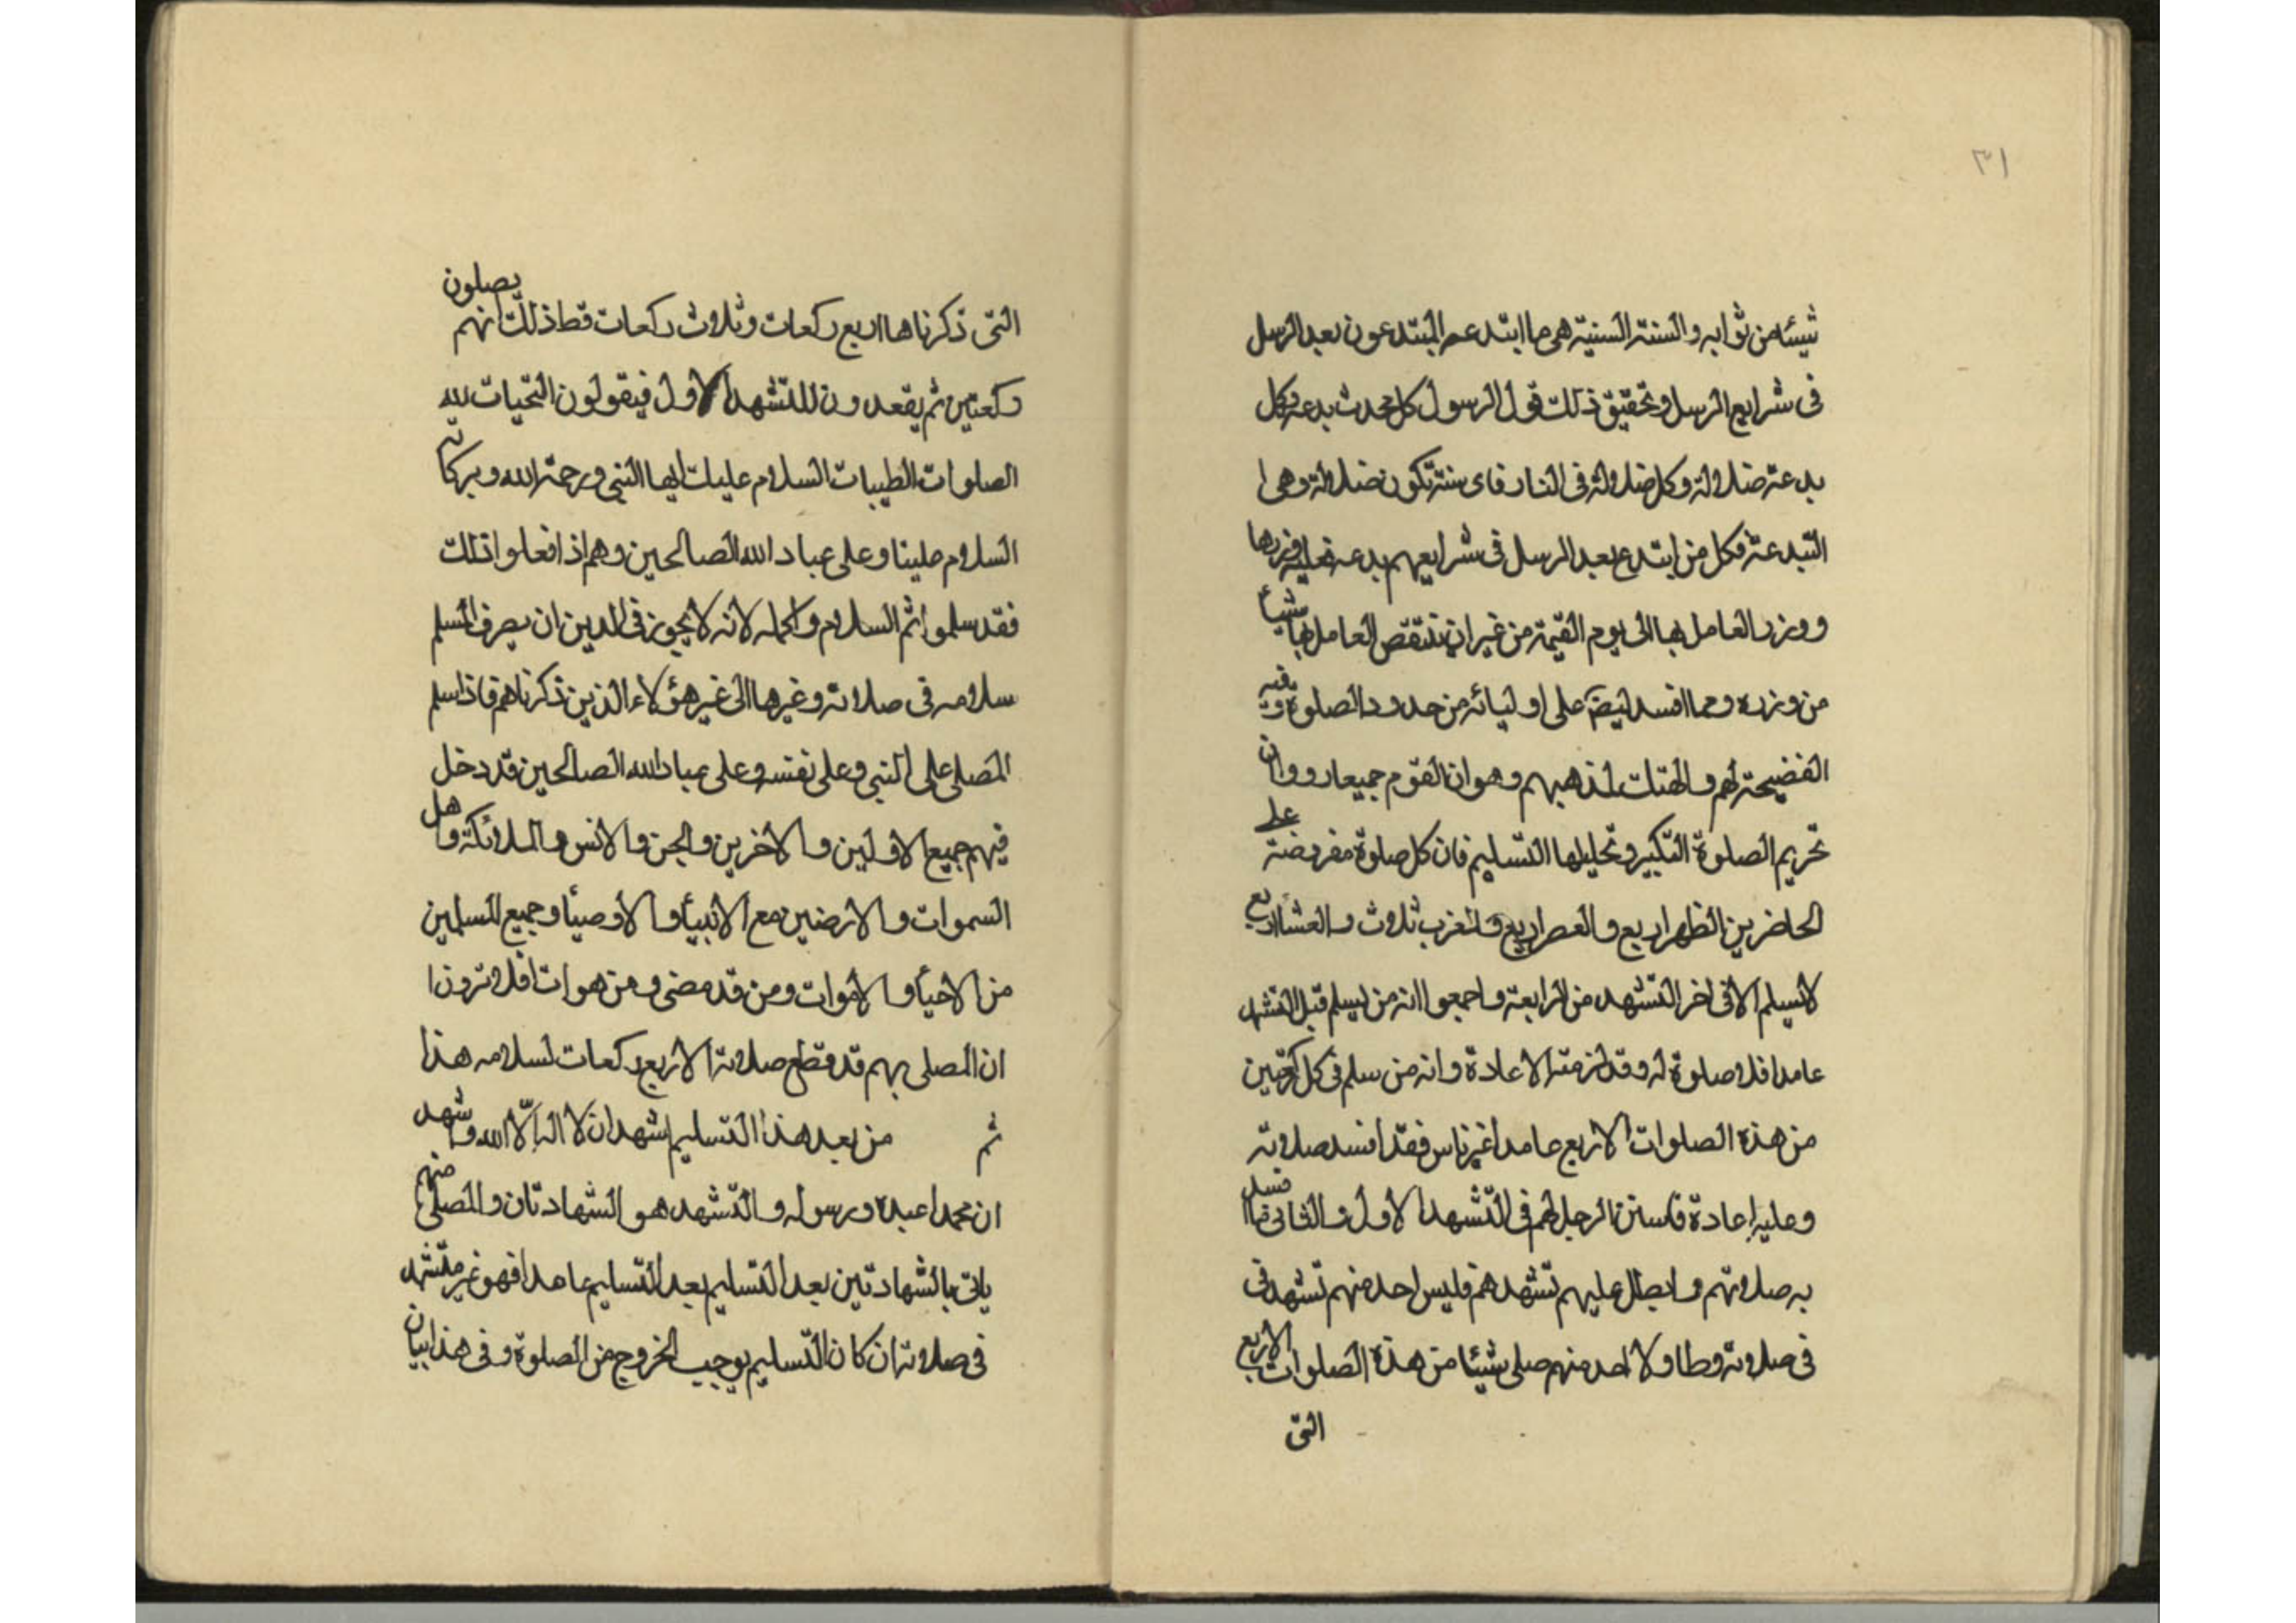 ٣١
شيئا من ثوابه والسنة السنية هي ما ابتدعه المبتدعون بعد الرسل
فى شرايع الرسل وتحقيق ذلك قول الرسول كل محدث بدعة وكل
بدعة ضلالة وكل ضلالة فى النار فاى سنة تكون ضلالة وهى ا
البدعة فكل من ابتدع بعد الرسل فى شرايعهم بدعة فعليه وزرها
ووزر العامل بها الى يوم القيمة من غير ان ينتقص العامل بها شيأ
من وزره ومما افسد ايضا على اوليائه من حدود الصلوة وفيه
الفضيحة لهم والهتك لمذهبهم وهو ان القوم جميعا رووا ان
تحريم الصلوة التكبير وتحليلها التسليم فان كل صلوة مفروضة على
الحاضرين الظهر اربع والعصر اربع والمغرب ثلاث والعشا اربع
لا يسلم الا فى اخر التشهد من الرابعة واجمعوا انه من يسلم قبل التشهد
عامدا فلا صلوة له وقد لزمته الاعادة وانه من سلم فى كل ركعتين
من هذه الصلوات الاربع عامدا غير ناس فقد افسد صلاته
وعليه اعادة فاستن الرجل لهم فى التشهد الاول والثانى ما افسد
به صلاتهم وابطل عليهم تشهدهم فليس احد منهم تشهد فى
فى صلاته قط ولا احد منهم صلى شيئا من هذه الصلوات الاربع
التى
التى ذكرناها اربع ركعات وثلاث ركعات قط ذلك انهم يصلون
ركعتين ثم يقعدون للتشهد الاول فيقولون التحيات لله
الصلوات الطيبات السلام عليك ايها النبي ورحمة الله وبركاته
السلام علينا وعلى عباد الله الصالحين وهم اذا فعلوا ذلك
فقد سلموا اتم السلام واكمله لانه لا يجوز فى الدين ان يصرف المسلم
سلامه فى صلاته وغيرها الى غير هؤلاء الذين ذكرناهم فاذا سلم
المصلى على النبي وعلى نفسه وعلى عباد الله الصالحين قد دخل
فيهم جميع الاولين والاخرين والجن والانس والملائكة واهل
السموات والارضين مع الانبيأ والأوصيأ وجميع المسلمين
من الاحيأ والاموات ومن قد مضى ومن هو ات افلا ترون ا
ان المصلى بهم قد قطع صلاته الاربع ركعات لسلامه هذا
ثم من بعد هذا التسليم اشهد ان لا اله الّا الله واشهد
ان محمدا عبده ورسوله والتشهد هو الشهادتان والمصلى منهم
ياتى بالشهادتين بعد التسليم بعد التسليم عامدا فهو غير متشهد
فى صلاته ان كان التسليم يوجب الخروج من الصلوة وفى هذا بيان